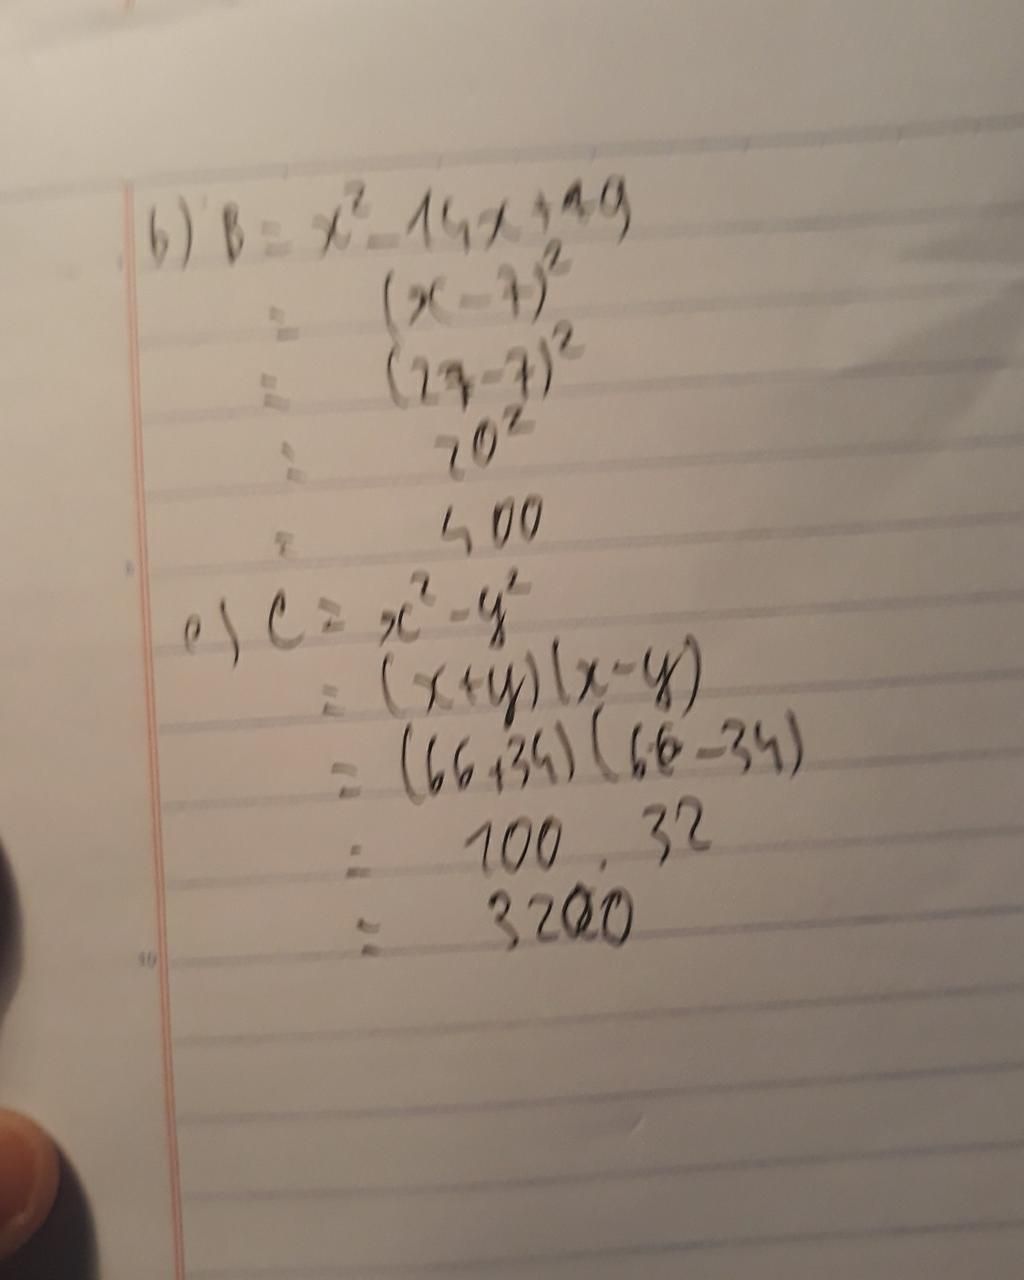 b) B = x² - 14x + 49
= (x - 7)²
= (27 - 7)²
= 20²
= 400
c) C = x² - y²
= (x+y)(x-y)
= (66+34)(66-34)
= 100 . 32
= 3200